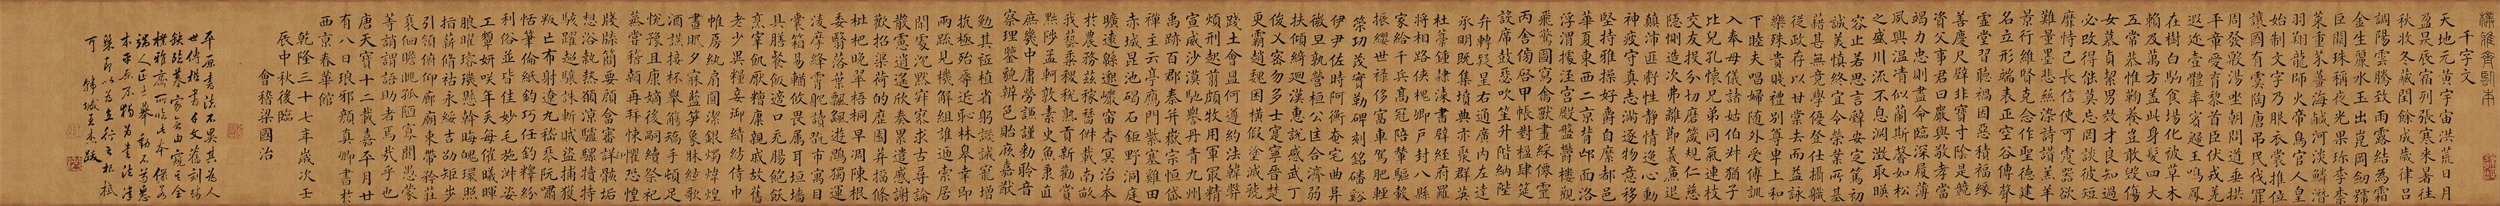 千字文
天地元黃宇宙洪荒日月
盈昃辰宿列張寒來暑往
秋收冬藏閏餘成歲律呂
調陽雲騰致雨露結為霜
金生麗水玉出崑岡劍號
巨闕珠稱夜光果珍李柰
菜重芥薑海鹹河淡鱗潛
羽翔龍師火帝鳥官人皇
始制文字乃服衣裳推位
讓國有虞陶唐弔民伐罪
周發殷湯坐朝問道垂拱
平章愛育黎首臣伏戎羌
遐邇壹體率賓歸王鳴鳳
在樹白駒食場化被草木
賴及萬方蓋此身髮四大
五常恭惟鞠養豈敢毀傷
女慕貞絜男效才良知過
必改得能莫忘罔談彼短
靡恃己長信使可覆器欲
難量墨悲絲染詩讚羔羊
景行維賢克念作聖德建
名立形端表正空谷傳聲
虛堂習聽禍因惡積福緣
善慶尺璧非寶寸陰是競
資父事君曰嚴與敬孝當
竭力忠則盡命臨深履薄
夙興溫凊似蘭斯馨如松
之盛川流不息淵澄取映
容止若思言辭安定篤初
誠美慎終宜令榮業所基
藉甚無竟學優登仕攝職
從政存以甘棠去而益詠
樂殊貴賤禮別尊卑上和
下睦夫唱婦隨外受傅訓
入奉母儀諸姑伯叔猶子
比兒孔懷兄弟同氣連枝
交友投分切磨箴規仁慈
隱惻造次弗離節義廉退
顛沛匪虧性靜情逸心動
神疲守真志滿逐物意移
堅持雅操好爵自縻都邑
華夏東西二京背邙面洛
浮渭據涇宮殿盤鬱樓觀
飛驚圖寫禽獸畫綵僊靈
丙舍傍啓甲帳對楹肆筵
設席鼓瑟吹笙升階納陛
弁轉疑星右通廣內左達
承明既集墳典亦聚群英
杜稾鍾隸漆書壁經府羅
將相路俠槐卿戶封八縣
家給千兵高冠陪輦驅轂
振纓世祿侈富車駕肥輕
策功茂實勒碑刻銘磻溪
伊尹佐時阿衡奄宅曲阜
微旦孰營桓公匡合濟弱
扶傾綺迴漢惠說感武丁
俊乂密勿多士寔寧晉楚
更霸趙魏困橫假塗滅虢
踐土會盟何遵約法韓弊
煩刑起翦頗牧用軍最精
宣威沙漠馳譽丹青九州
禹跡百郡秦并嶽宗恒岱
禪主云亭鴈門紫塞雞田
赤城昆池碣石鉅野洞庭
曠遠緜邈巖岫杳冥治本
於農務茲稼穡俶載南畝
我藝黍稷稅熟貢新勸賞
黜陟孟軻敦素史魚秉直
庶幾中庸勞謙謹勑聆音
察理鑒貌辨色貽厥嘉猷
勉其祗植省躬譏誡寵增
抗極殆辱近恥林皋幸即
兩疏見機解組誰逼索居
閒處沉默寂寥求古尋論
散慮逍遙欣奏累遣慼謝
歡招渠荷的歷園莽抽條
枇杷晚翠梧桐早凋陳根
委翳落葉飄颻遊鵾獨運
凌摩絳霄耽讀翫市寓目
囊箱易輶攸畏屬耳垣墻
具膳飡飯適口充腸飽飫
烹宰飢厭糟糠親戚故舊
老少異糧妾御績紡侍巾
帷房紈扇圓潔銀燭煒煌
晝眠夕寐藍筍象牀絃歌
酒讌接杯舉觴矯手頓足
悅豫且康嫡後嗣續祭祀
蒸嘗稽顙再拜悚懼恐惶
牋牒簡要顧答審詳骸垢
想浴執熱願涼驢騾犢特
駭躍超驤誅斬賊盜捕獲
叛亡布射遼丸嵇琴阮嘯
恬筆倫紙鈞巧任釣釋紛
利俗並皆佳妙毛施淑姿
工顰妍咲年矢每催曦暉
朗曜琁璣懸斡晦魄環照
指薪修祜永綏吉劭矩步
引領俯仰廊廟束帶矜莊
裵徊瞻眺孤陋寡聞愚蒙
等誚謂語助者焉哉乎也
唐天寶十二載嘉平月廿
有八日琅邪顏真卿書於
西京春華館
乾隆三十七年歲次壬
辰中秋後臨
會稽梁國治
平原書法不異其為人
世傳楷書千文舊刻
可 韓城王杰跋